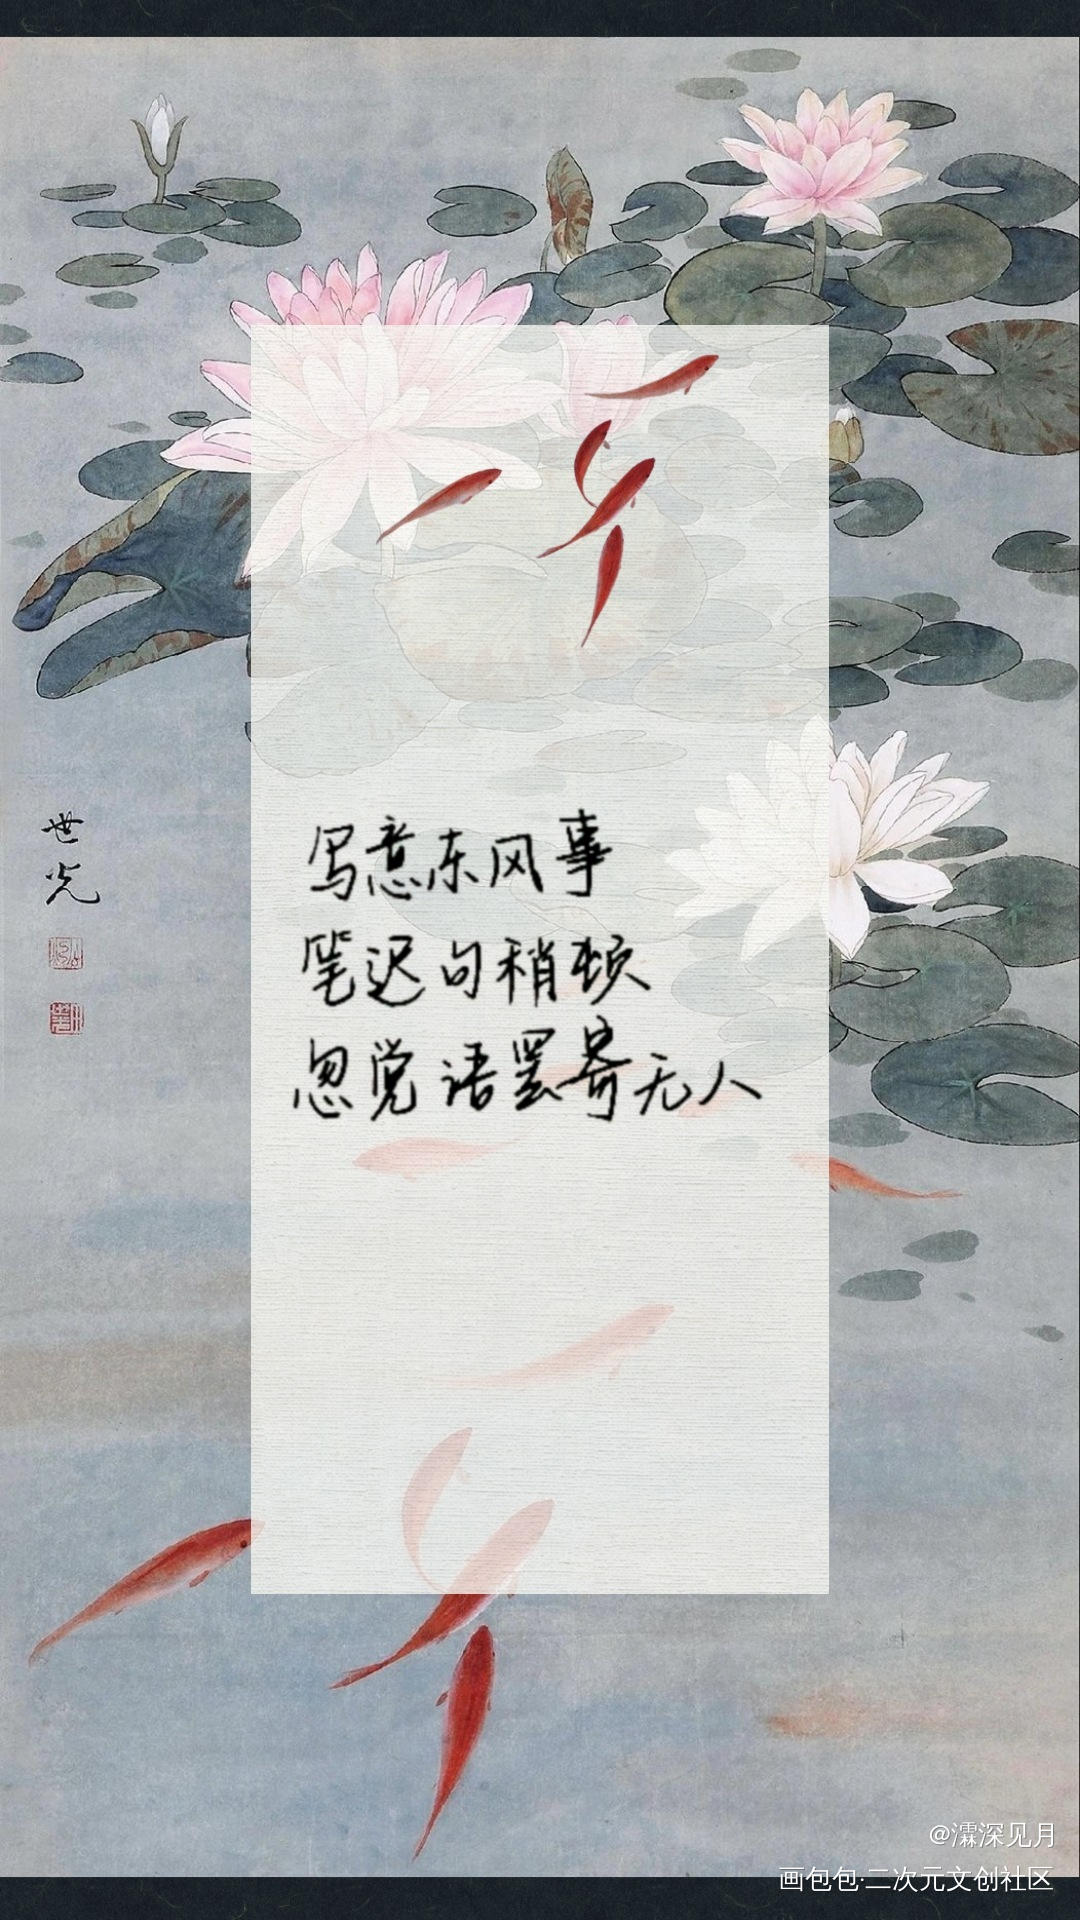 写意东风事
笔迟句稍顿
忽觉语罢寄无人
世光
@灀深见月
画包包·二次元文创社区